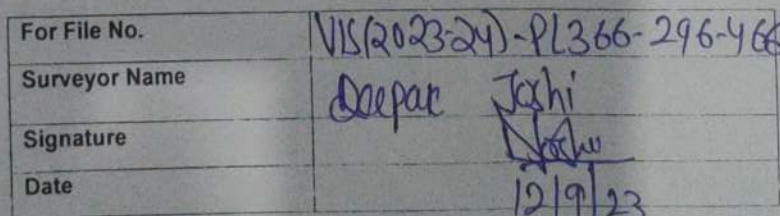 For File No. VIS(2023-24)-PL366-296-466
Surveyor Name Deepak Joshi
Signature
Date 12/9/23